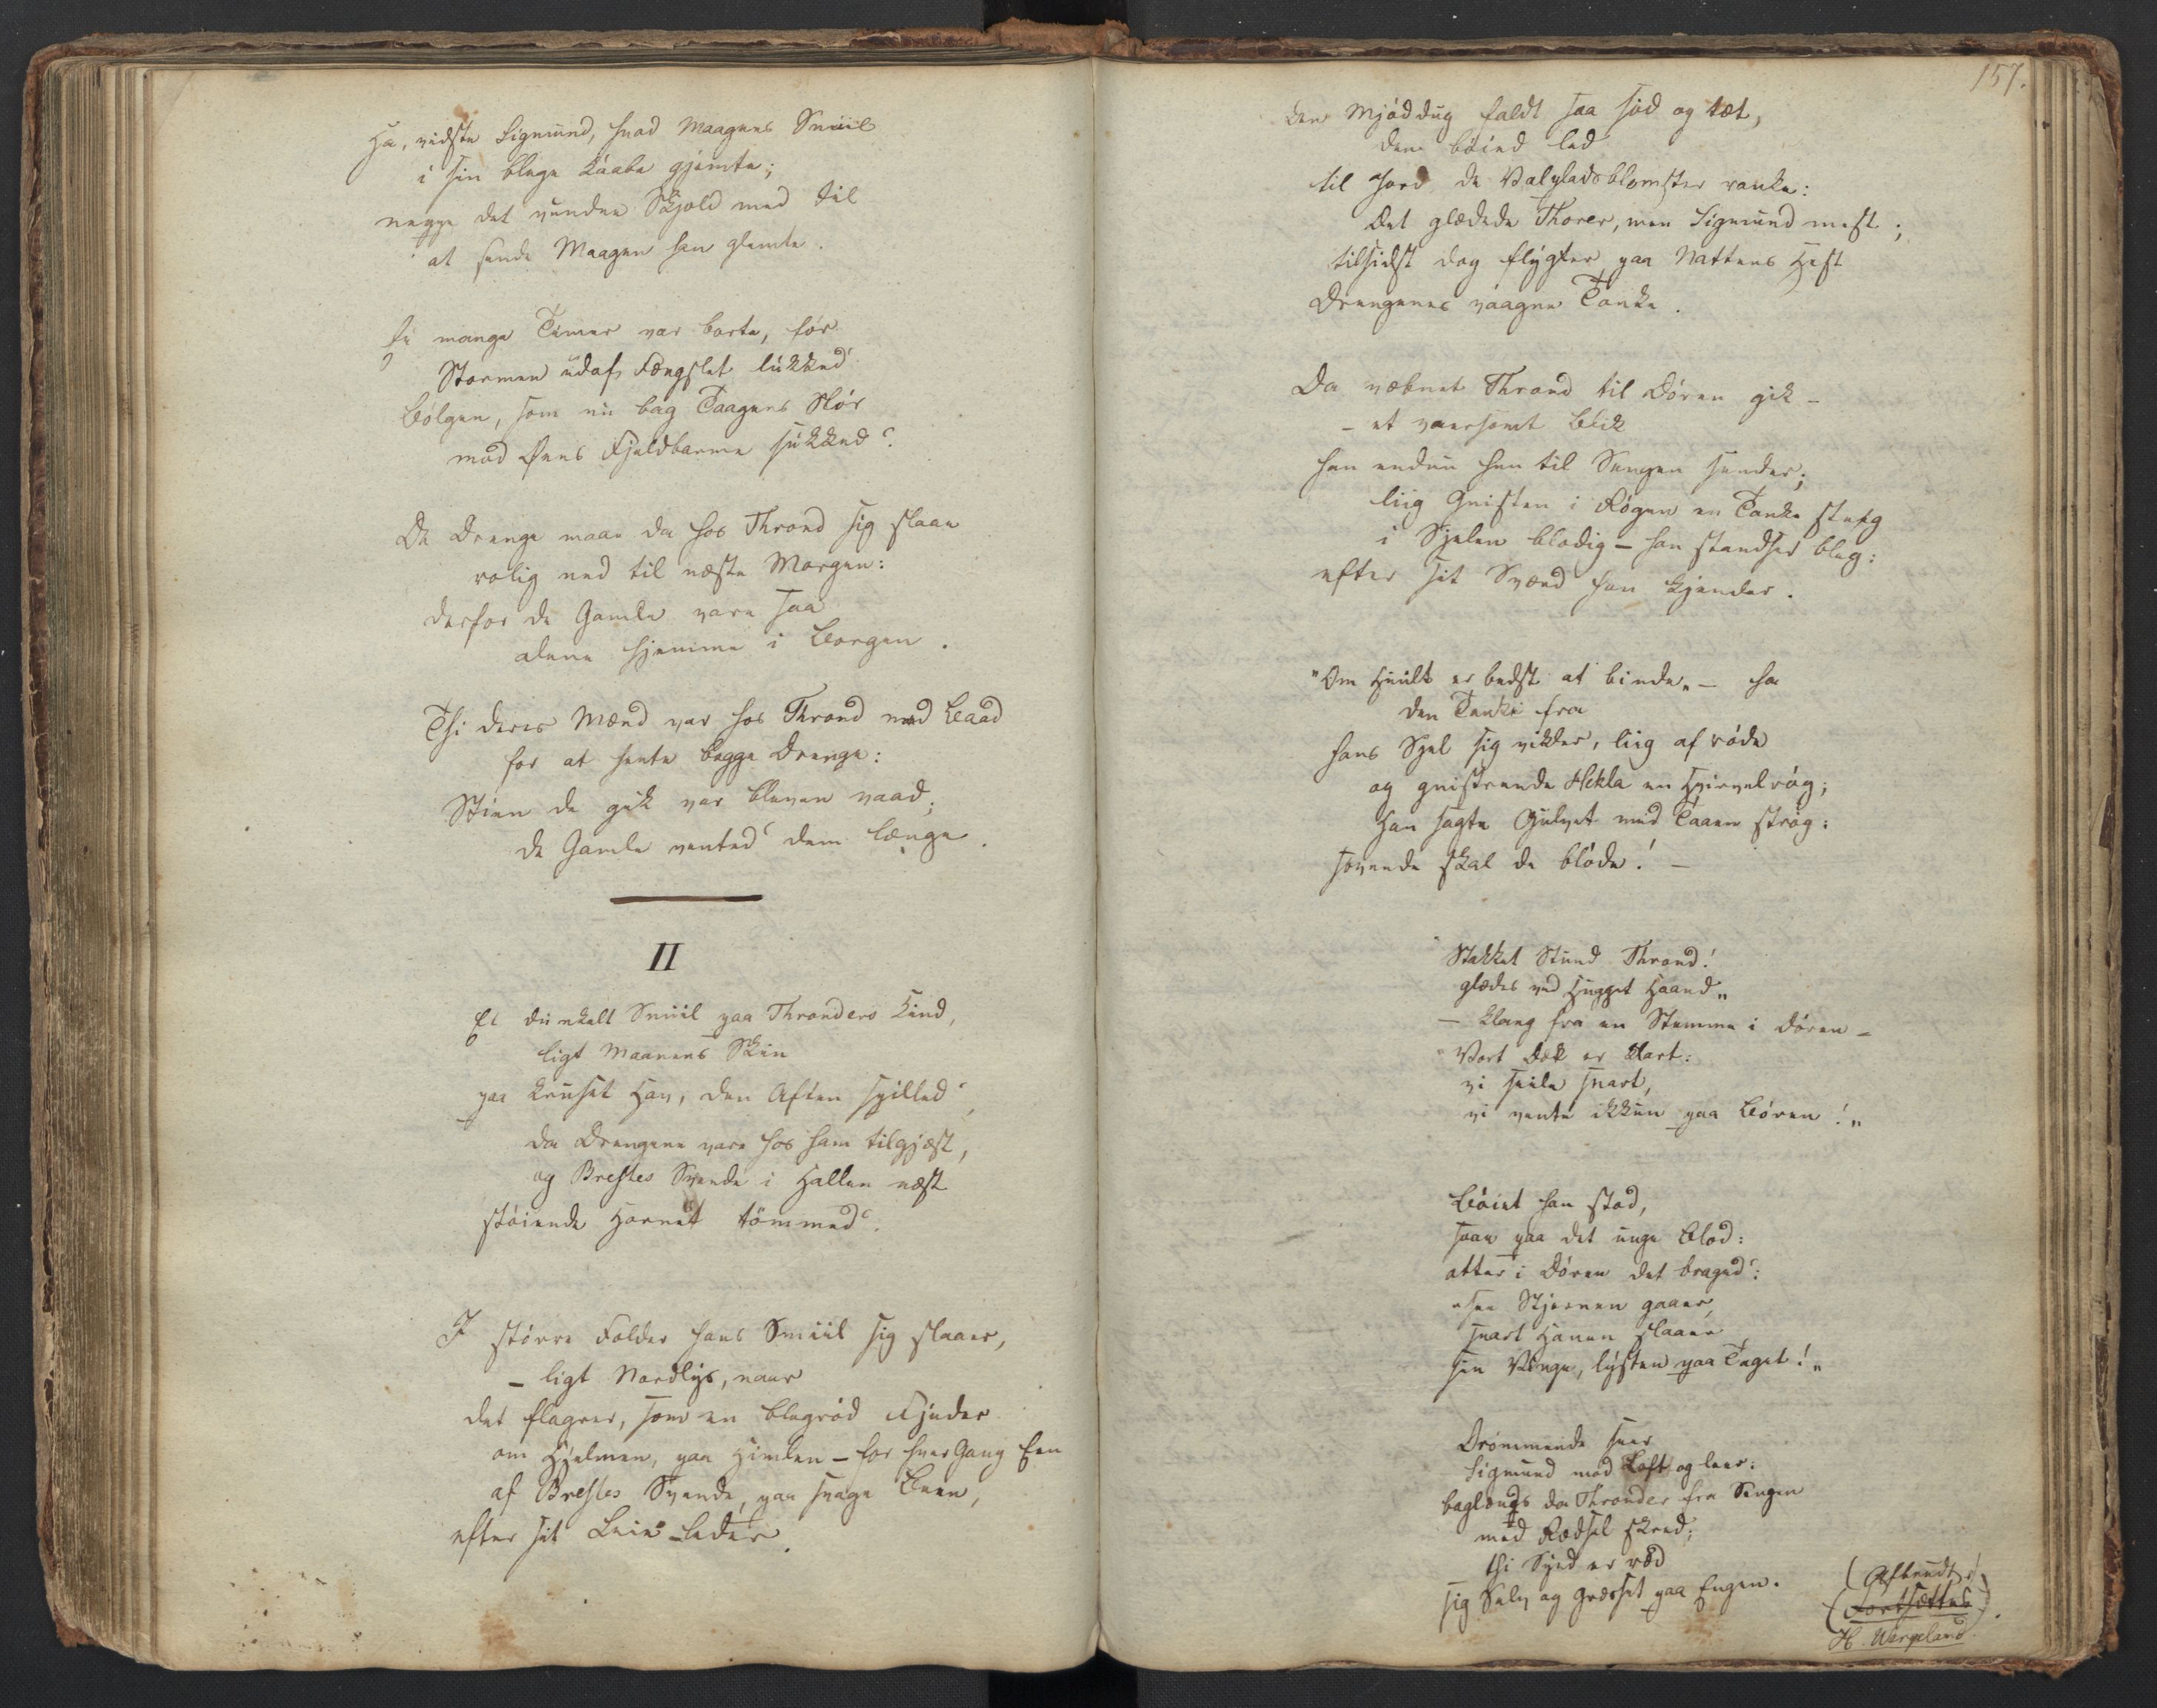 Ha, vidste Sigmund, hvad Maagens Smiil
i sin blege Kaabe gjemte;
neppe det runden Skjold med Iil
at sende Maagen han glemte.
Ei mange Timer var borte, før
Stormen udaf Fængslet lukked'
Bølgen, som nu bag Taagens Slør
mod Øens Fjeldbarme sukked'.
De Drenge maae da hos Thrond sig slaae
rolig ned til næste Morgen:
derfor de Gamle vare saa
alene hjemme i Borgen.
Thi deres Mænd var hos Thrond med Baad
for at hente begge Drenge:
Stien de gik var bleven vaad;
de Gamle vented' dem længe.
II
Et dunkelt Smiil paa Thronders Kind,
ligt Maanens Skin
paa kruset Hav, den Aften spilled',
da Drengene vare hos ham tilgjæst,
og Brestes Svende i Hallen næst
støiende Hornet tømmed'.
I større Folder hans Smiil sig slaaer,
– ligt Nordlys, naar
det flagrer, som en blegrød Fjeder
om Hjelmen, paa Himlen – for hver Gang Een
af Brestes Svende, paa svage Been,
efter sit Leie leder.
157.
Den Mjøddug faldt saa sød og tæt,
den bøied led
til Jord de Valpladsblomster ranke:
Det glædede Thorer, men Sigmund mest;
tilsidst dog flygter paa Nattens Hest
Drengenes vaagne Tanke.
Da væbnet Thrond til Døren gik –
– et varsomt Blik
han endnu hen til Sengen sender;
liig Gnisten i Røgen en Tanke steeg
i Sjelen blodig – han standser bleg:
efter sit Sværd han kjender.
"Om Hvulk er bedst at binde" – ha
den Tanke fra
hans Sjel sig vikler, liig af røde
og gnistrende Hekla en Hvirvelrøg;
Han sagte Gulvet med Taaen strøg:
sovende skal de bløde! –
"Stakket Stund Thrond!
glædes ved Hugget Haand"
– klang fra en Stemme i Døren –
"Vort Dæk er klart:
vi seile snart,
vi vente ikkun paa Børen!"
Bøiet han stod,
saae paa det unge Blod:
atter i Døren det braged':
"see Stjernen gaaer,
snart Hanen slaaer
sin Vinge, lysten paa Taget!"
Drømmende seer
Sigmund mod Loft og leer:
baglængs da Thronder fra Sengen
med Rædsel skred;
thi Syed er rød
sig Selv og Græsset paa Engen.
(Afbrudt)
(Fortsættes)
H. Wergeland.